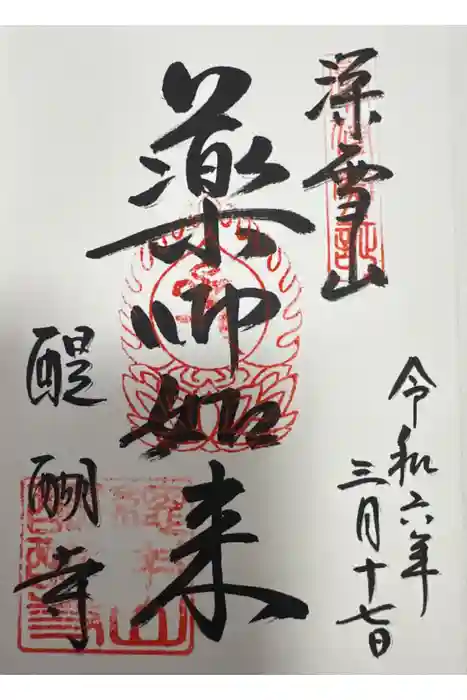 深雪山
令和六年
三月十七日
薬師如来
醍醐寺